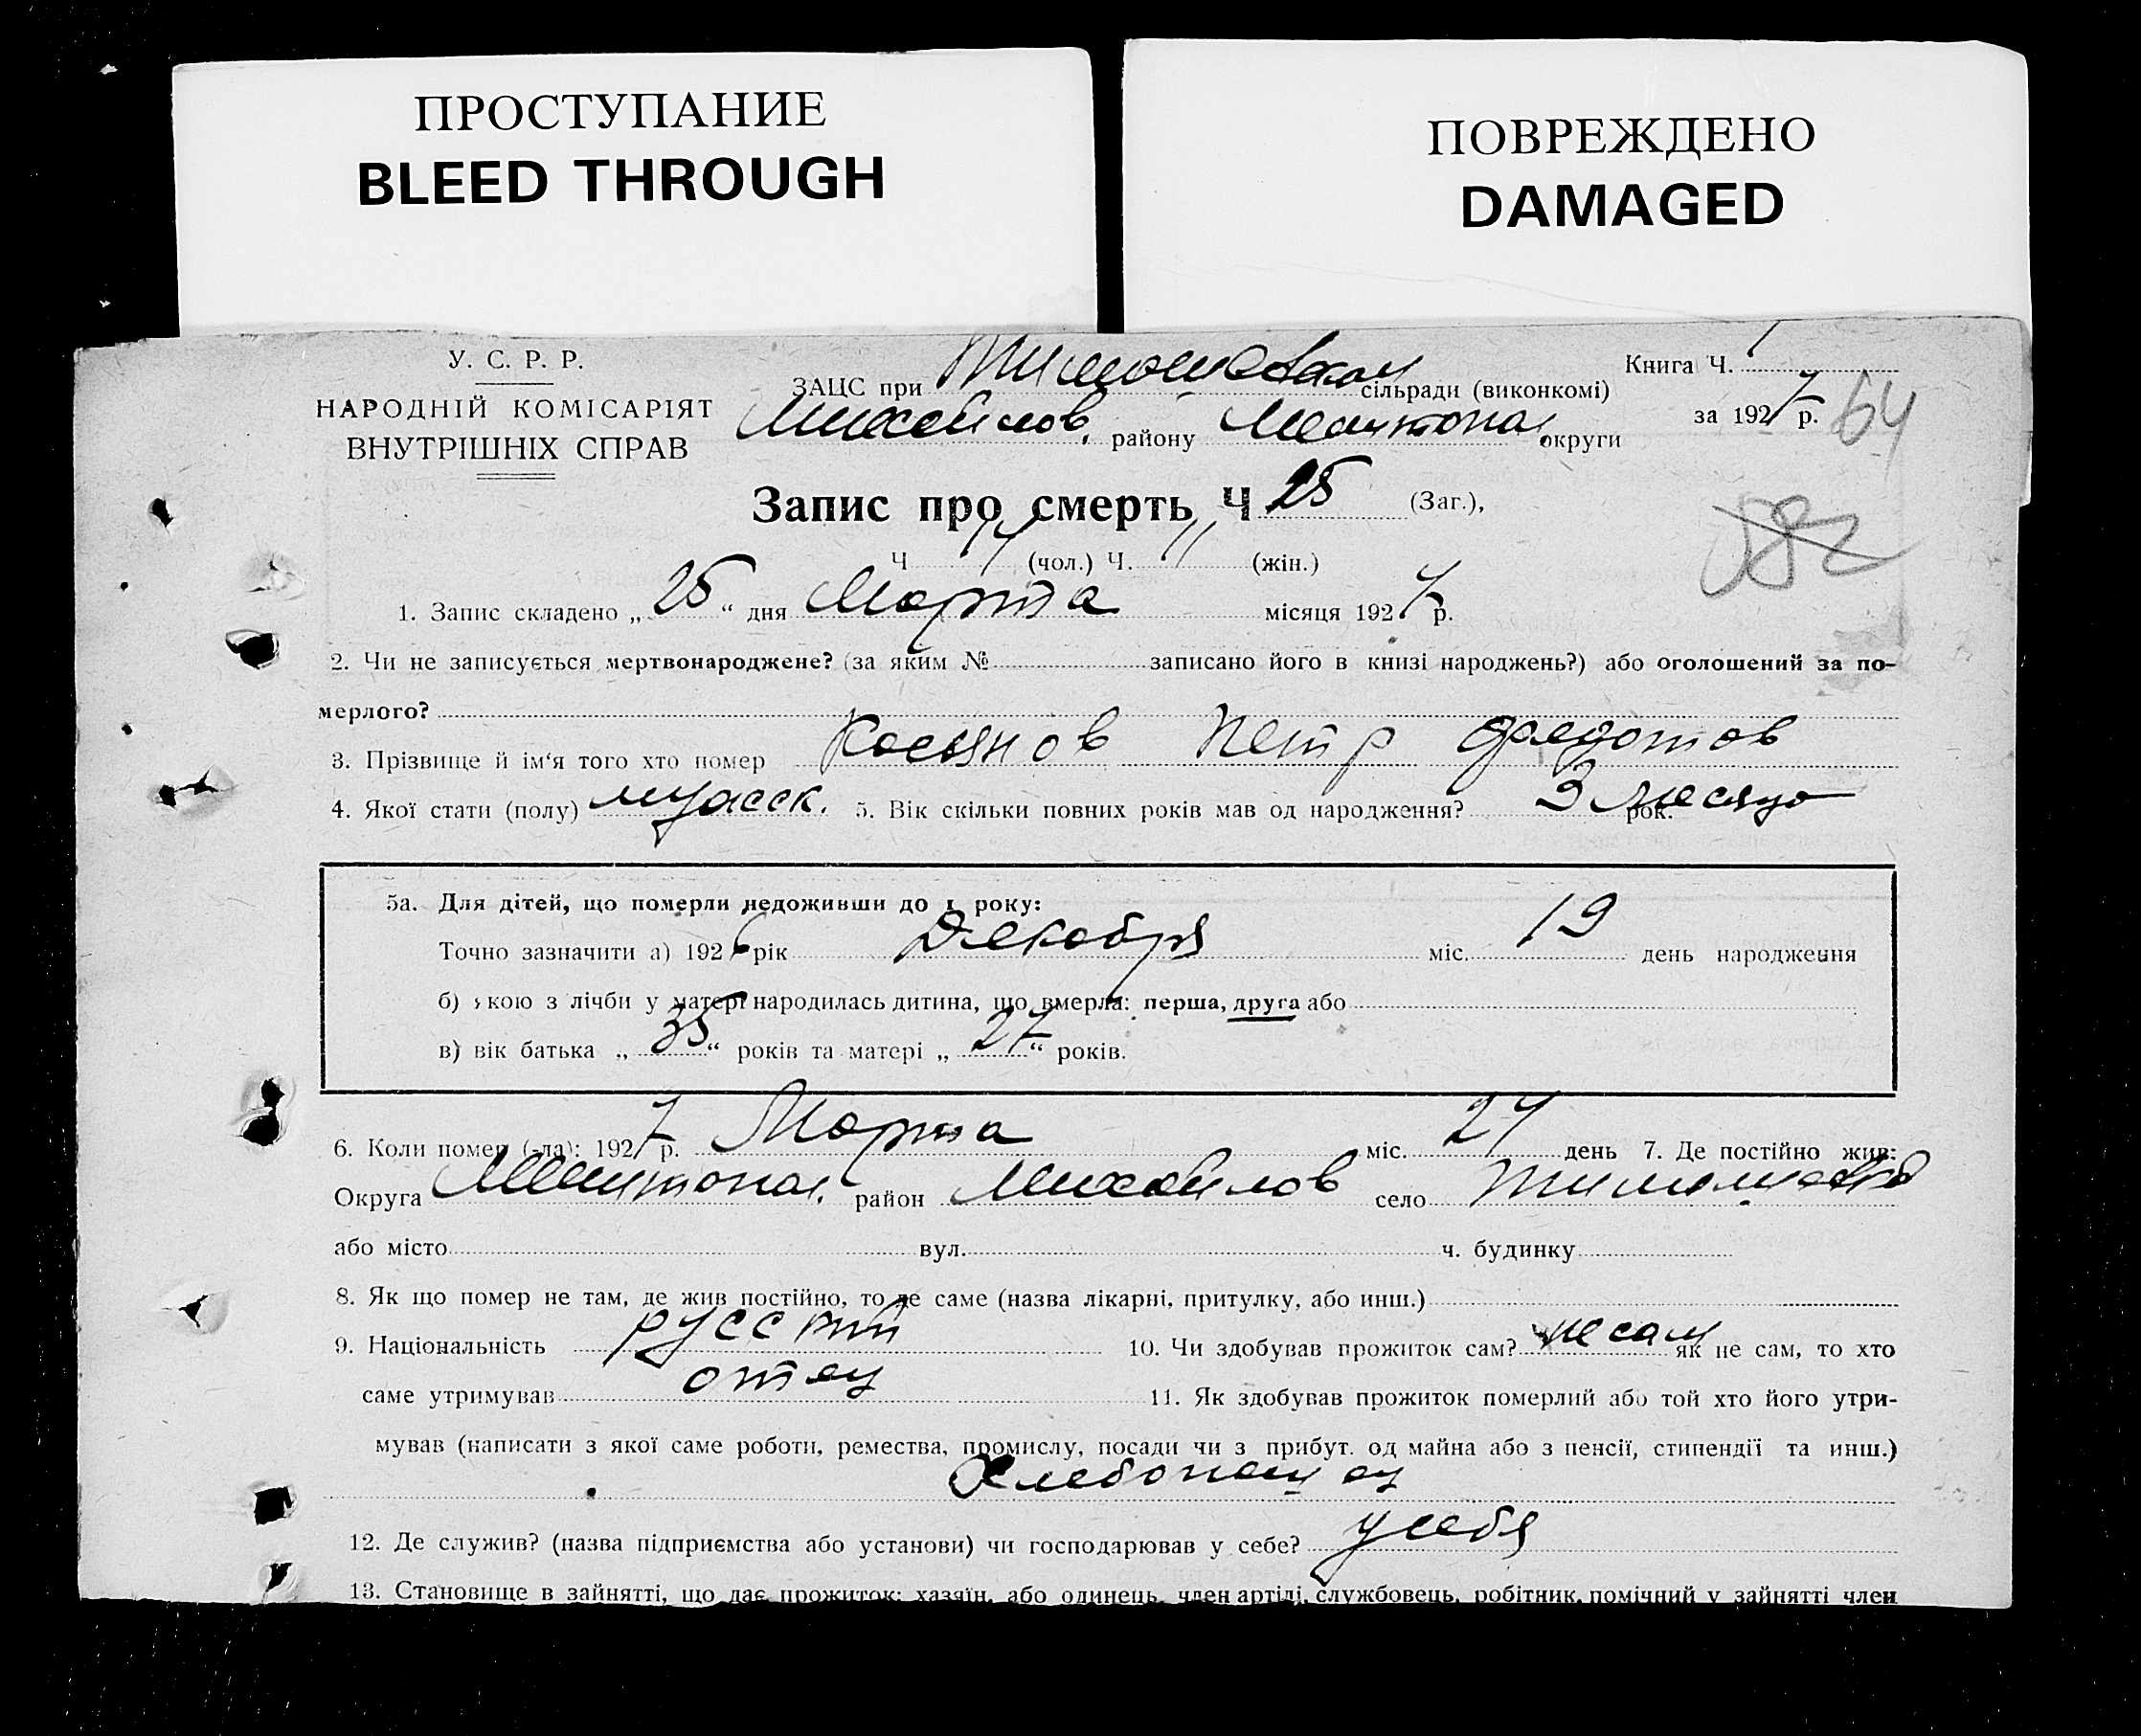 ПРОСТУПАНИЕ
BLEED THROUGH
ПОВРЕЖДЕНО
DAMAGED
У. С. Р. Р.
НАРОДНІЙ КОМІСАРІЯТ
ВНУТРІШНІХ СПРАВ
ЗАЦС при Тимошевском сільради (виконкомі)
Михайлов. району Мелитопол. округи
Книга Ч. 1
за 1927 р. 64
Запис про смерть Ч 25 (Заг.),
582
Ч 14 (чол.) Ч. 11 (жін.)
1. Запис складено „ 25 “ дня Марта місяця 1927 р.
2. Чи не записується мертвонароджене? (за яким № записано його в книзі народжень?) або оголошений за по-
мерлого?
3. Прізвище й ім'я того хто помер Косьянов Петр Федотов
4. Якої стати (полу) мужеск. 5. Вік скільки повних років мав од народження? 3 месяца рок.
5а. Для дітей, що померли недоживши до 1 року:
Точно зазначити а) 1926 рік Декабря міс. 19 день народження
б) якою з лічби у матері народилась дитина, що вмерла: перша, друга або
в) вік батька „ 35 “ років та матері „ 27 “ років.
6. Коли помер (-ла): 1927 р. Марта міс. 24 день 7. Де постійно жив:
Округа Мелитопол. район Михайлов село Тимошевка
або місто вул. ч. будинку
8. Як що помер не там, де жив постійно, то де саме (назва лікарні, притулку, або инш.)
9. Національність русский 10. Чи здобував прожиток сам? не сам як не сам, то хто
саме утримував отец 11. Як здобував прожиток померлий або той хто його утри-
мував (написати з якої саме роботи, ремества, промислу, посади чи з прибут. од майна або з пенсії, стипендії та инш.)
Хлебопашец
12. Де служив? (назва підприємства або установи) чи господарював у себе? у себя
13. Становище в зайнятті, що дає прожиток: хазяїн, або одинець, член артілі, службовець, робітник, помічний у зайнятті член